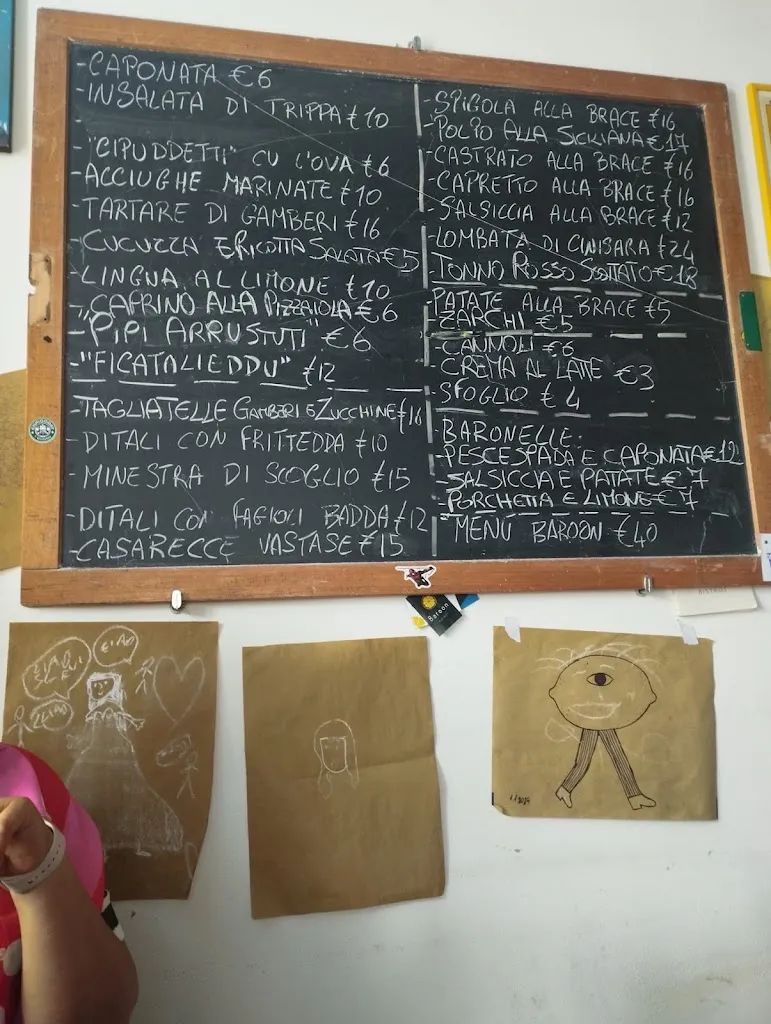 -CAPONATA €6
-INSALATA DI TRIPPA €10
-
-"CIPUDDETTI" CU L'OVA €6
-ACCIUGHE MARINATE €10
-TARTARE DI GAMBERI €16
-CUCUZZA E RICOTTA SALATA €5
-LINGUA AL LIMONE €10
-CAPRINO ALLA PIZZAIOLA €6
-"PIPI ARRUSTUTI" €6
-"FICATALIEDDU" €12
-TAGLIATELLE GAMBERI E ZUCCHINE €16
-DITALI CON FRITTEDDA €10
-MINESTRA DI SCOGLIO €15
-DITALI CON FAGIOLI BADDA €12
-CASARECCE VASTASE €15
-SPIGOLA ALLA BRACE €16
-POLPO ALLA SICILIANA €17
-CASTRATO ALLA BRACE €16
-CAPRETTO ALLA BRACE €16
-SALSICCIA ALLA BRACE €12
-LOMBATA DI CINISARA €24
-TONNO ROSSO SCOTTATO €18
-PATATE ALLA BRACE €5
-ZARCHI €5
-CANNOLI €6
CREMA AL LATTE €3
-SFOGLIO €4
BARONELLE:
-PESCESPADA E CAPONATA €12
-SALSICCIA E PATATE €7
-PORCHETTA E LIMONE €7
-MENÙ BAROON €40
Baroon
CIAO